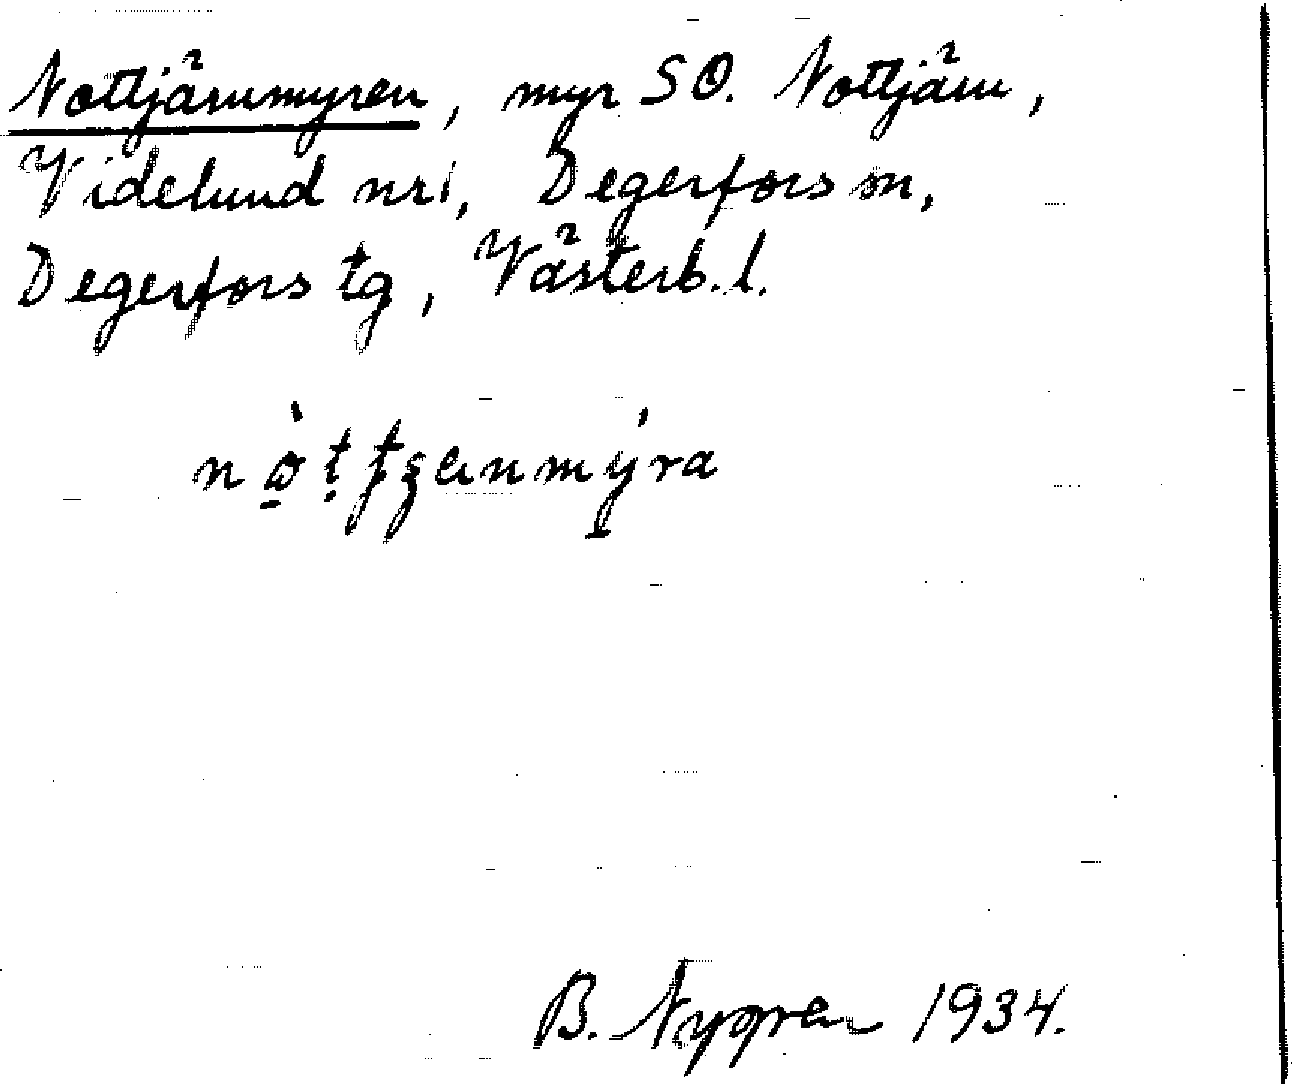 Nottjärnmyren, myr SO. Nottjärn,
Videlund nr 1, Degerfors sn,
Degerfors tg, Västerb. l.
B. Nygren 1934.